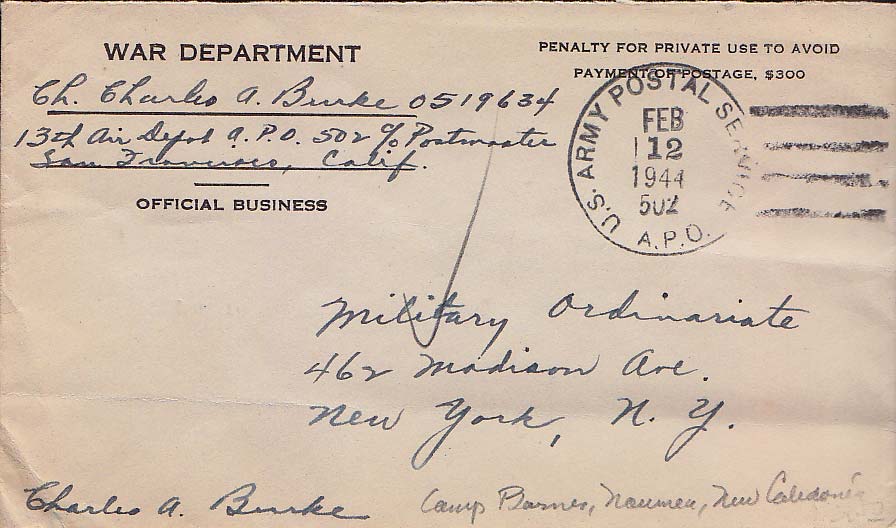 WAR DEPARTMENT
PENALTY FOR PRIVATE USE TO AVOID
PAYMENT OF POSTAGE, $300
Ch. Charles A. Burke 0519634
13th Air Depot A.P.O. 502 c/o Postmaster
San Francisco, Calif.
OFFICIAL BUSINESS
U.S. ARMY POSTAL SERVICE
FEB
12
1944
502
A.P.O.
Military Ordinariate
462 Madison Ave.
New York, N.Y.
Charles A. Burke
Camp Barnes, Noumea, New Caledonia